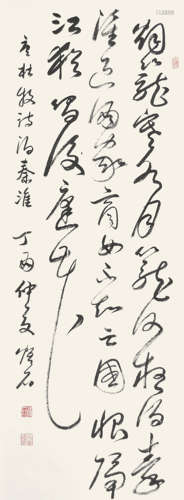 煙籠寒水月籠沙夜泊秦
淮近酒家商女不知亡國恨隔
江猶唱後庭花
唐杜牧詩泊秦淮 丁酉仲夏 石